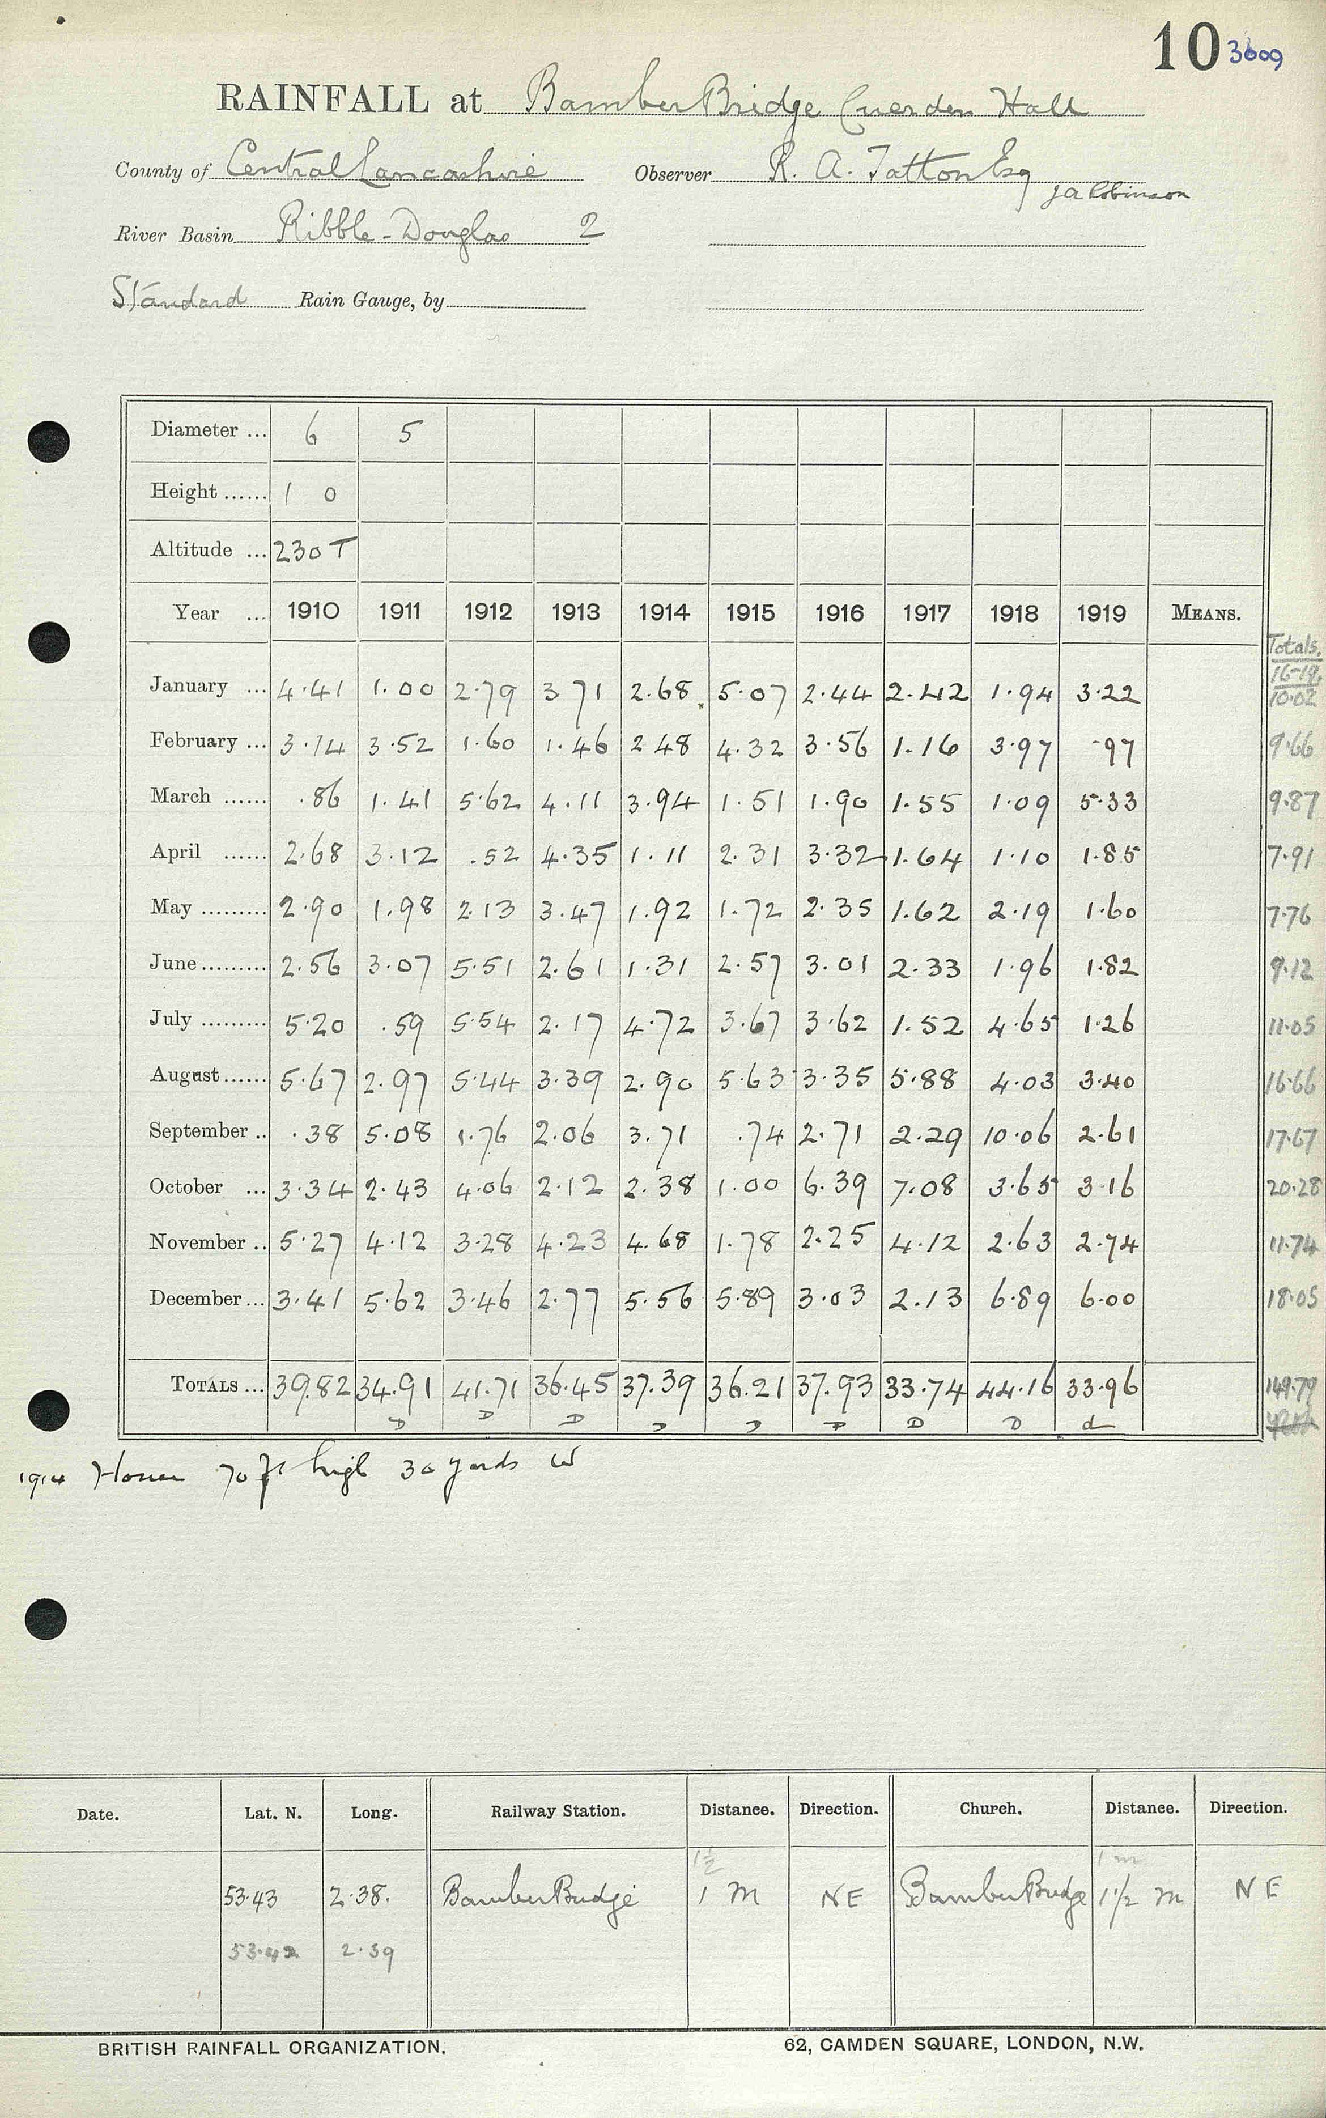 10 3609
RAINFALL at Bamber Bridge Cuerden Hall
County of Central Lancashire Observer R. A. Tatton Esq
J A Robinson
River Basin Ribble-Douglas 2
Standard Rain Gauge, by
Diameter ... 6 5
Height ...... 1 0
Altitude ... 230 T
Year ... 1910 1911 1912 1913 1914 1915 1916 1917 1918 1919 MEANS.
Totals.
16-19
January ... 4.41 1.00 2.79 3.71 2.68 5.07 2.44 2.42 1.94 3.22 10.02
February ... 3.14 3.52 1.60 1.46 2.48 4.32 3.56 1.16 3.97 .97 9.66
March ...... .86 1.41 5.62 4.11 3.94 1.51 1.90 1.55 1.09 5.33 9.87
April ...... 2.68 3.12 .52 4.35 1.11 2.31 3.32 1.64 1.10 1.85 7.91
May ......... 2.90 1.98 2.13 3.47 1.92 1.72 2.35 1.62 2.19 1.60 7.76
June ......... 2.56 3.07 5.51 2.61 1.31 2.57 3.01 2.33 1.96 1.82 9.12
July ......... 5.20 .59 5.54 2.17 4.72 3.67 3.62 1.52 4.65 1.26 11.05
August ...... 5.67 2.97 5.44 3.39 2.90 5.63 3.35 5.88 4.03 3.40 16.66
September .. .38 5.08 1.76 2.06 3.71 .74 2.71 2.29 10.06 2.61 17.67
October ... 3.34 2.43 4.06 2.12 2.38 1.00 6.39 7.08 3.65 3.16 20.28
November .. 5.27 4.12 3.28 4.23 4.68 1.78 2.25 4.12 2.63 2.74 11.74
December ... 3.41 5.62 3.46 2.77 5.56 5.89 3.03 2.13 6.89 6.00 18.05
TOTALS ... 39.82 34.91 41.71 36.45 37.39 36.21 37.93 33.74 44.16 33.96 149.79
D D D D D D D D d
1914 House 70 ft high 30 yards W
Date. Lat. N. Long. Railway Station. Distance. Direction. Church. Distance. Direction.
1½ 1 m
53.43 2.38. Bamber Bridge 1 m NE Bamber Bridge 1½ m NE
53.42 2.39
BRITISH RAINFALL ORGANIZATION. 62, CAMDEN SQUARE, LONDON, N.W.